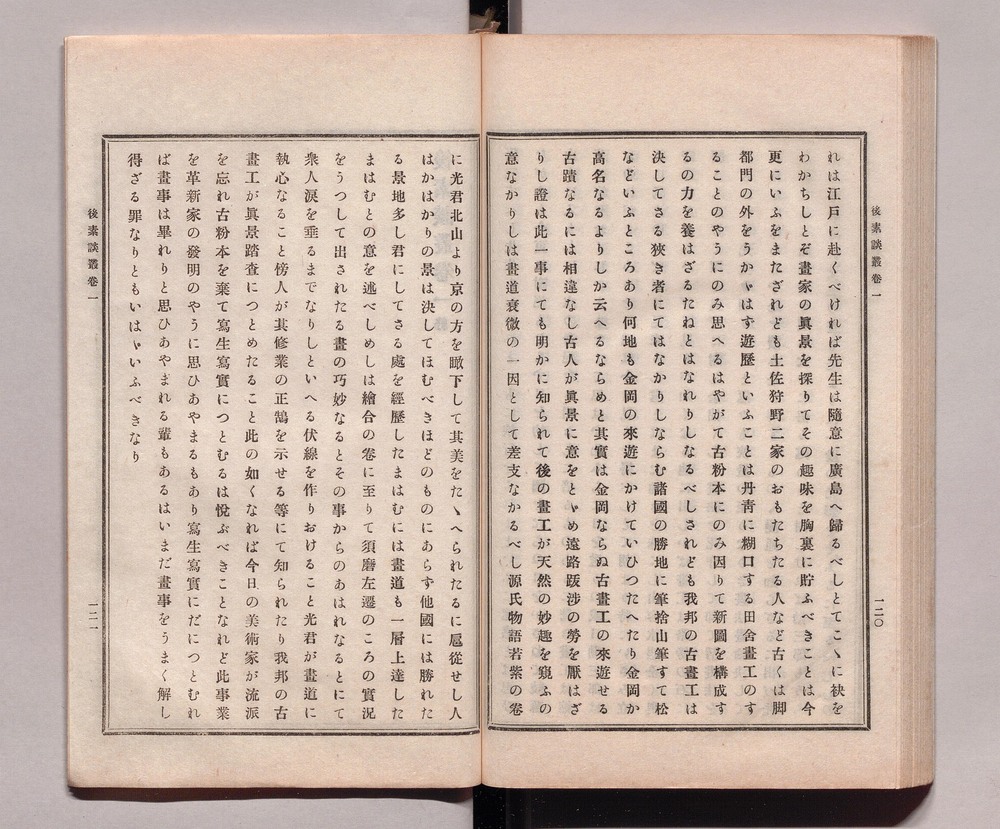 後素談叢卷一
一二〇
れは江戸に赴くべければ先生は隨意に廣島へ歸るべしとてこゝに袂を
わかちしとぞ畫家の眞景を探りてその趣味を胸裏に貯ふべきことは今
更にいふをまたざれども土佐狩野二家のおもたちたる人など古くは脚
都門の外をうかゞはず遊歷といふことは丹靑に糊口する田舍畫工のす
ることのやうにのみ思へるはやがて古粉本にのみ因りて新圖を構成す
るの力を養はざるたねとはなれりしなるべしされども我邦の古畫工は
決してさる狹き者にてはなかりしならむ諸國の勝地に筆捨山筆すて松
などいふところあり何地も金岡の來遊にかけていひつたへたり金岡か
高名なるよりしか云へるならめと其實は金岡ならぬ古畫工の來遊せる
古蹟なるには相違なし古人が眞景に意をとゞめ遠路跋涉の勞を厭はざ
りし證は此一事にても明かに知られて後の畫工が天然の妙趣を窺ふの
意なかりしは畫道衰微の一因として差支なかるべし源氏物語若紫の卷
に光君北山より京の方を瞰下して其美をたゝへられたるに扈從せし人
はかはかりの景は決してほむべきほどのものにあらず他國には勝れた
る景地多し君にしてさる處を經歷したまはむには畫道も一層上達した
まはむとの意を述べしめしは繪合の卷に至りて須磨左遷のころの實況
をうつして出されたる畫の巧妙なるとその事からのあはれなるとにて
衆人淚を垂るまでなりしといへる伏線を作りおけること光君が畫道に
執心なること傍人が其修業の正鵠を示せる等にて知られたり我邦の古
畫工が眞景踏査につとめたること此の如くなれば今日の美術家が流派
を忘れ古粉本を棄て寫生寫實につとむるは悅ぶべきことなれど此事業
を革新家の發明のやうに思ひあやまるもあり寫生寫實にだにつとむれ
ば畫事は畢れりと思ひあやまれる輩もあるはいまだ畫事をうまく解し
得ざる罪なりともいはゞいふべきなり
後素談叢卷一
一二一